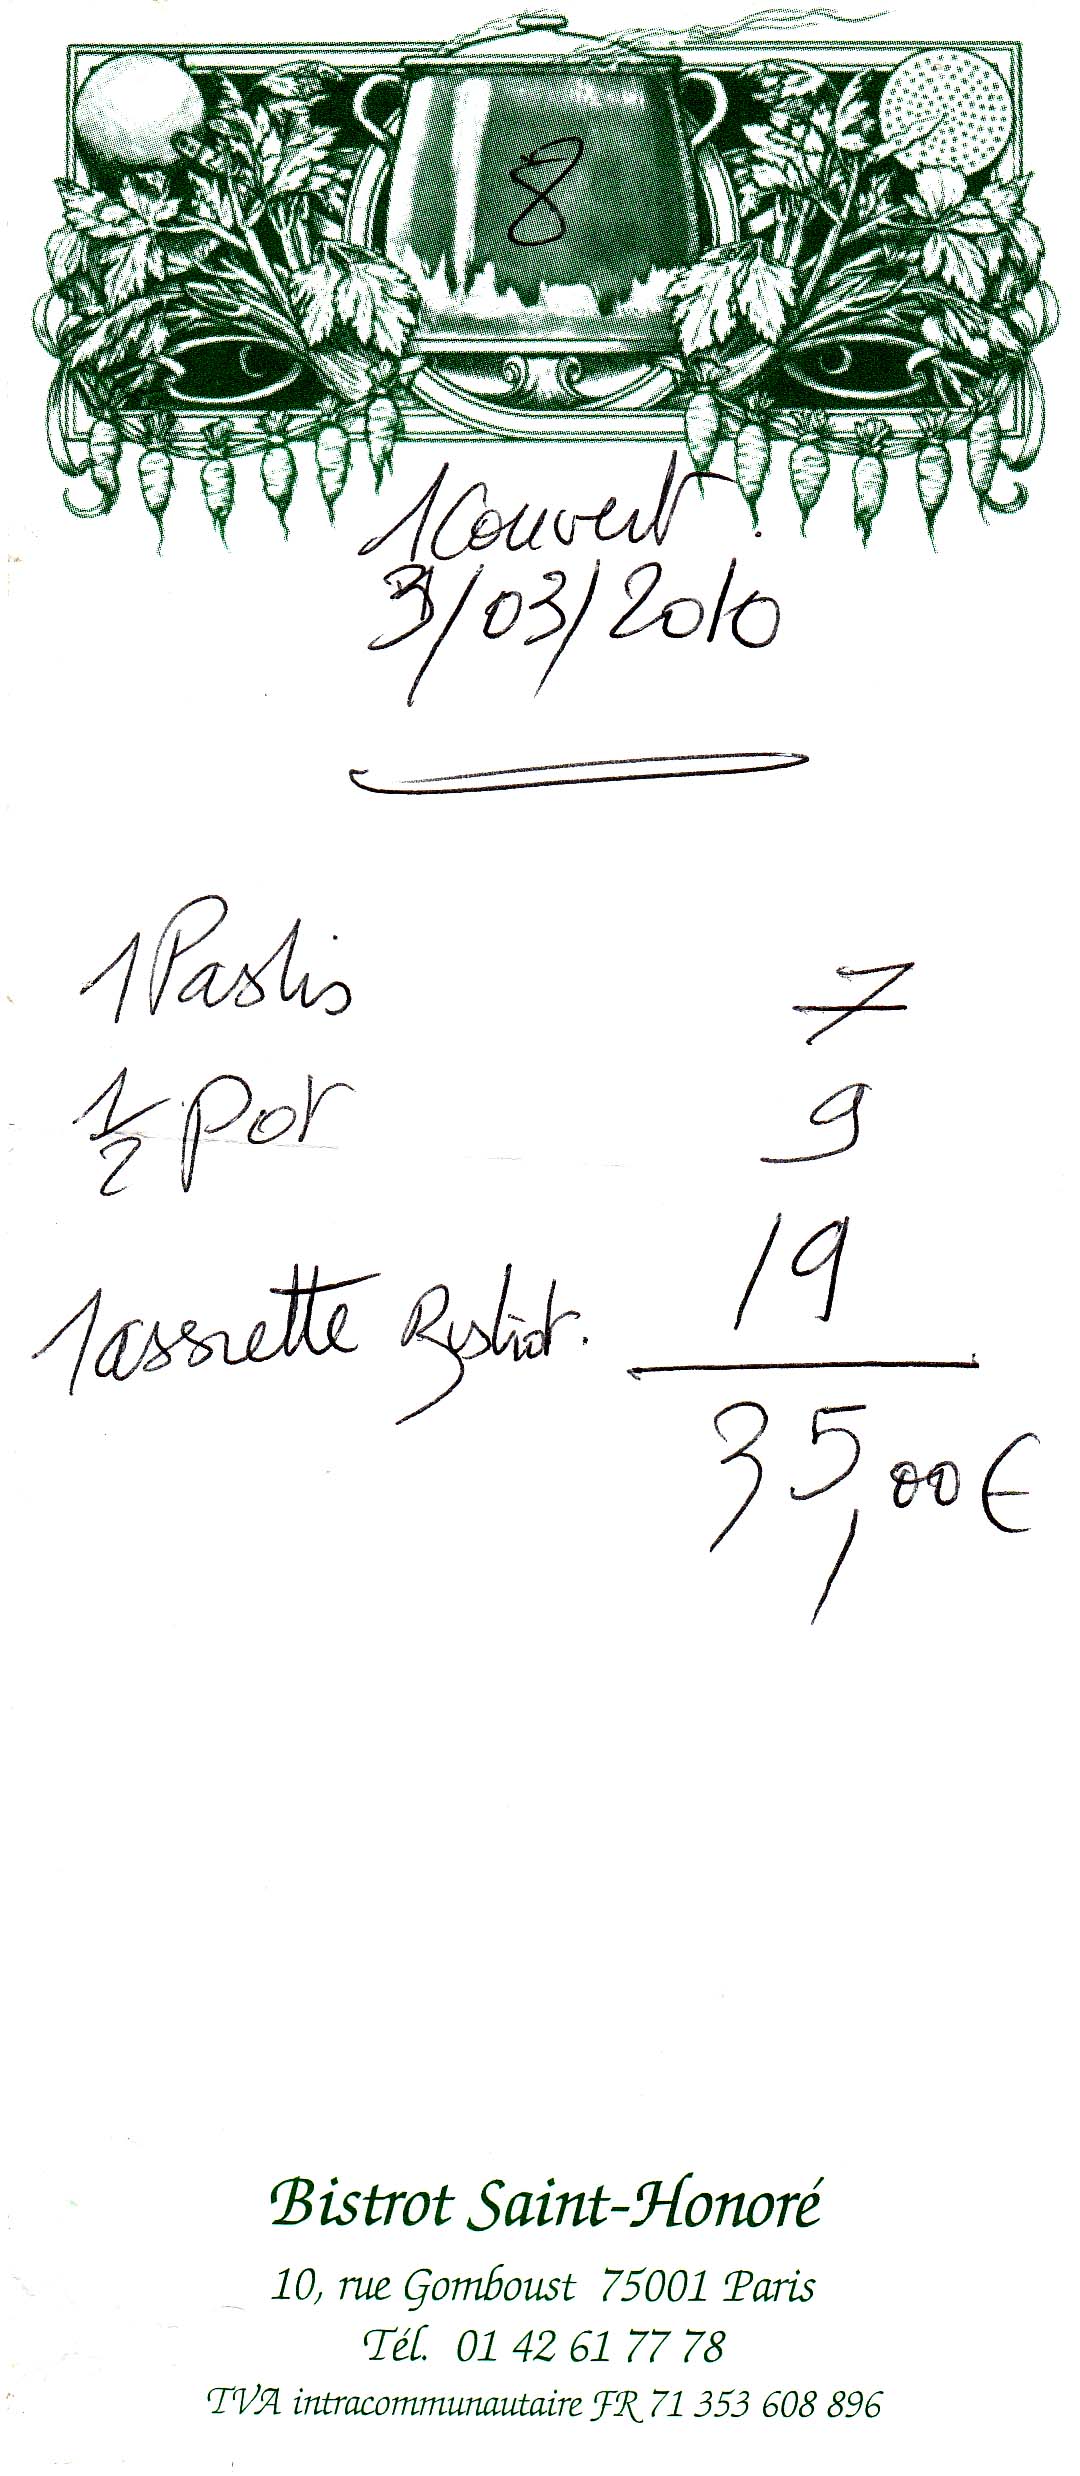 8
1 Couvert.
31/03/2010
1 Pastis 7
1/2 pot 9
1 assiette Bistrot. 19
35,00€
Bistrot Saint-Honoré
10, rue Gomboust 75001 Paris
Tél. 01 42 61 77 78
TVA intracommunautaire FR 71 353 608 896